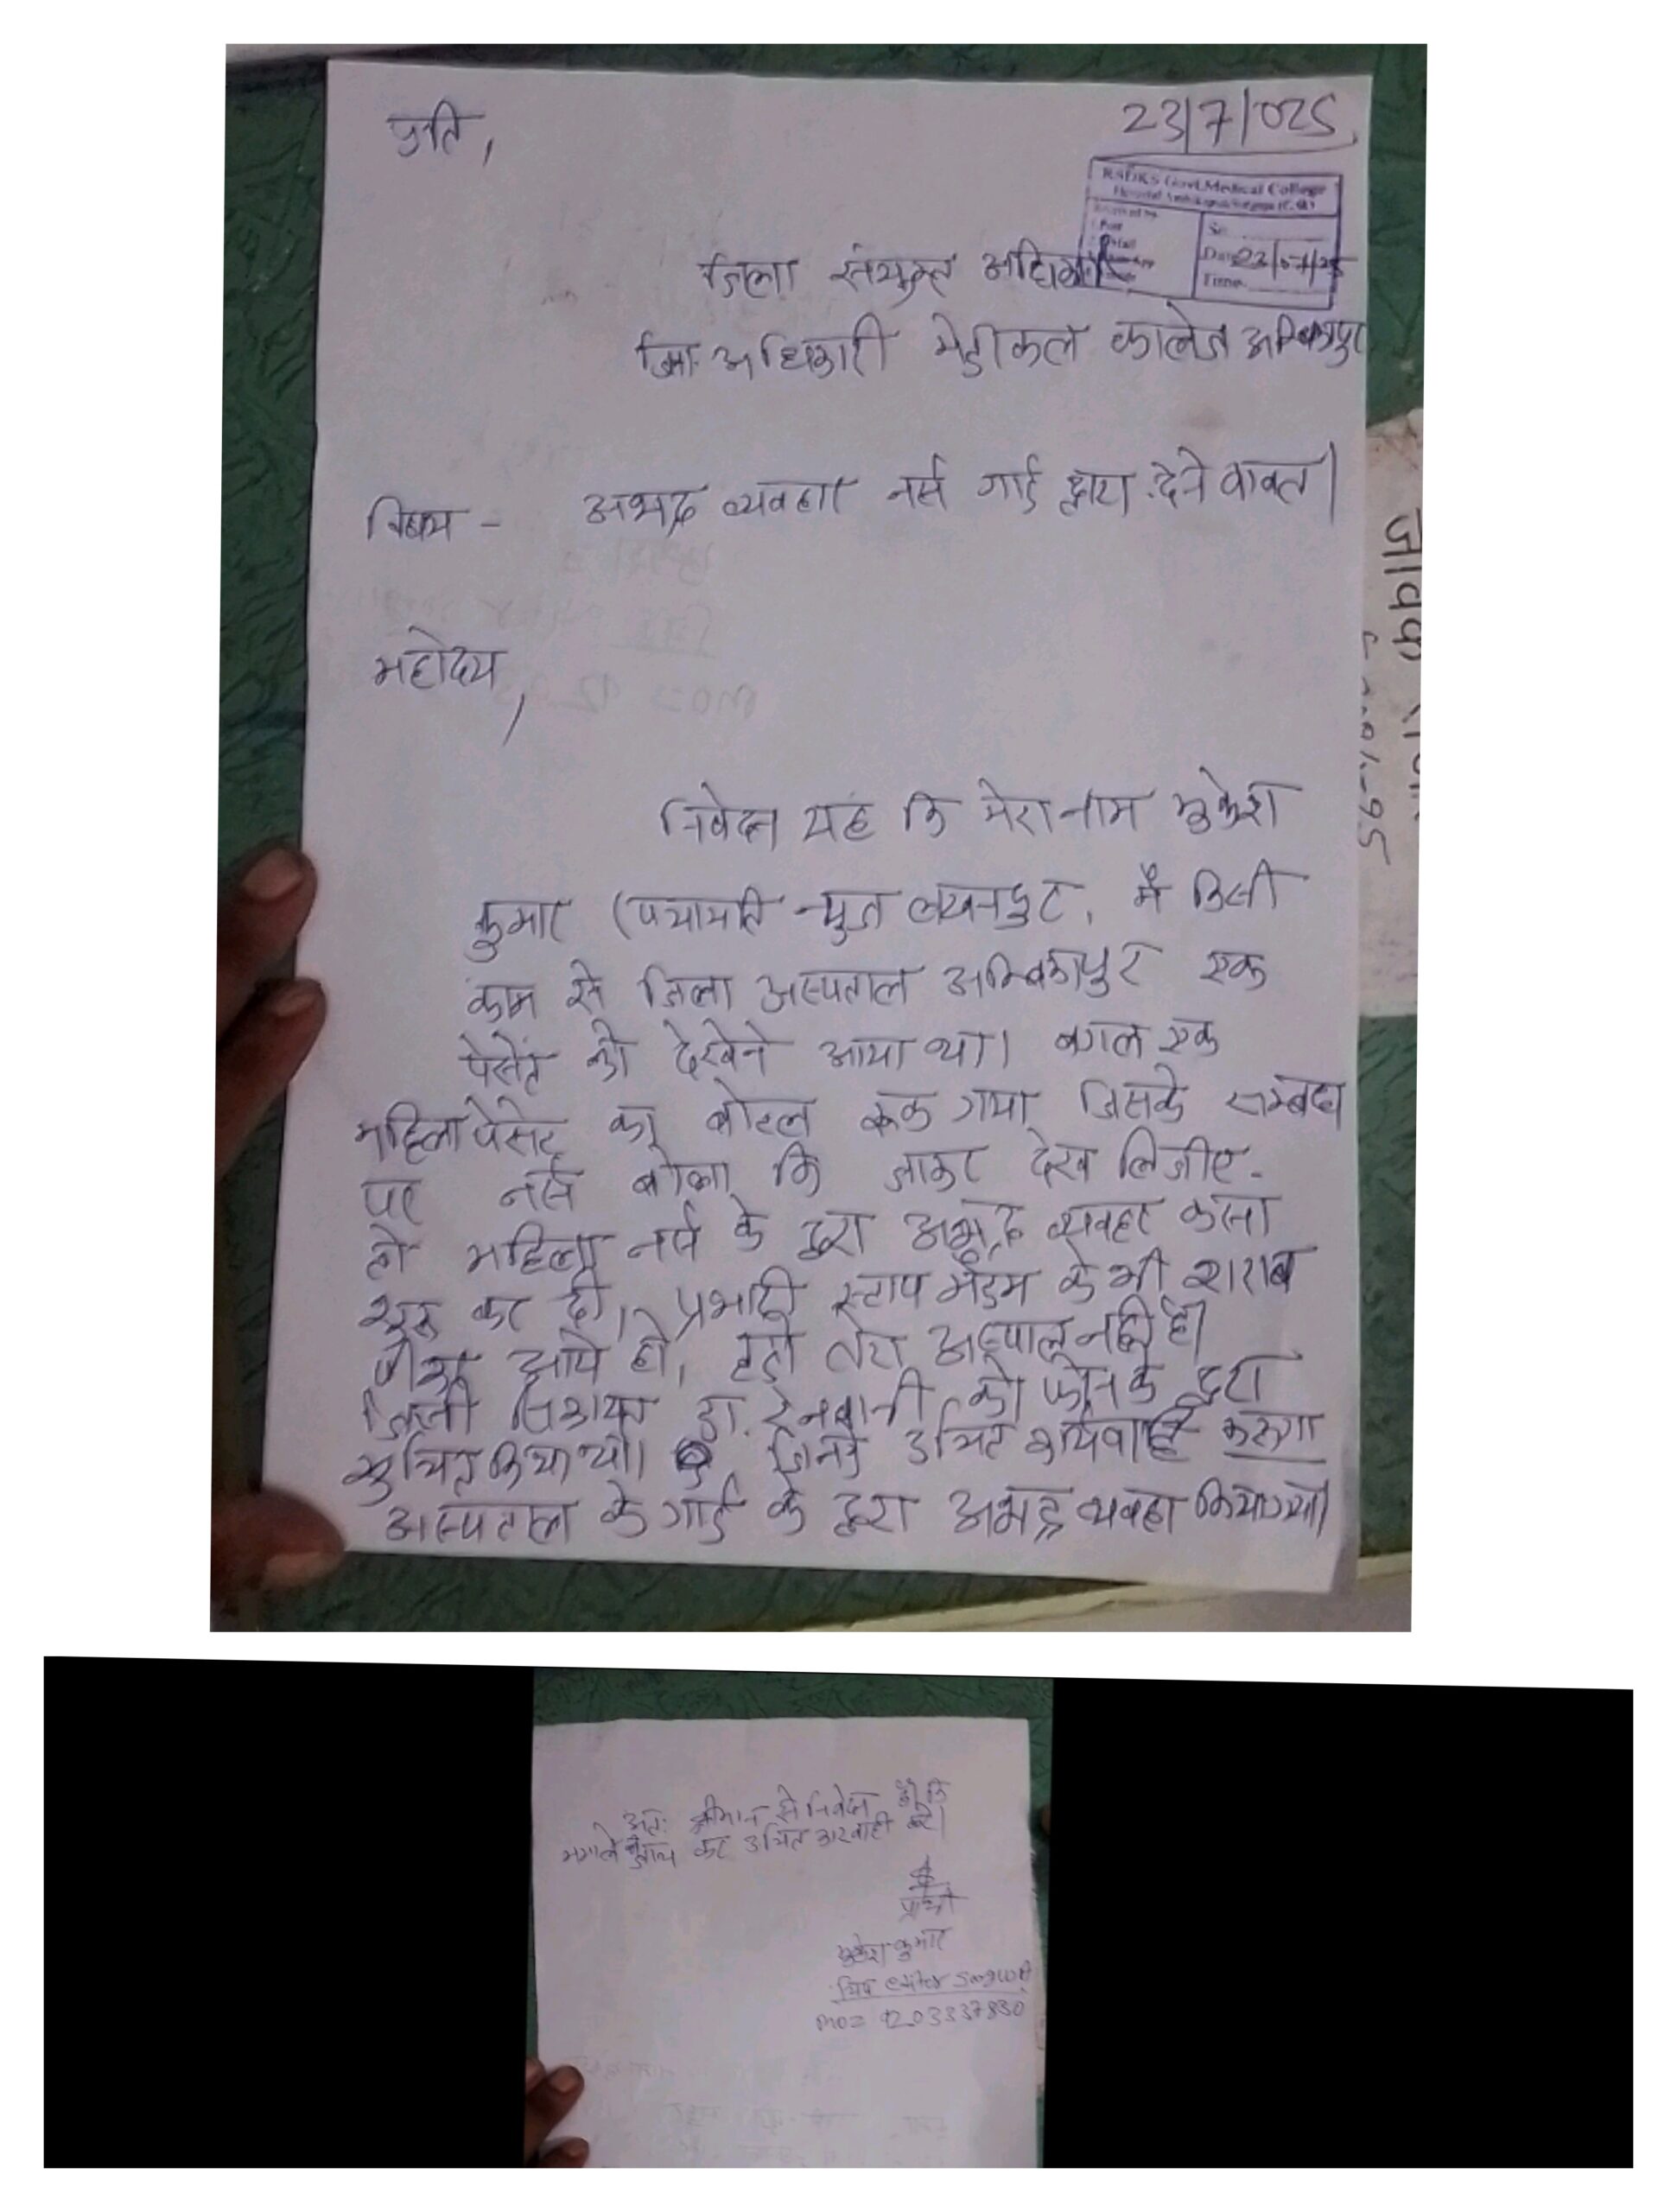 23/7/025
प्रति,
RSDKS Govt. Medical College
Hospital Ambikapur Surguja (C.G.)
Received by
Post
Sr.
Date 23/07/25
Time
जिला संयुक्त
अधिकारी मेडीकल कालेज अम्बिकापुर
विषय - अभद्र व्यवहार नर्स गार्ड द्वारा देने वावत।
महोदय,
निवेदन यह कि मेरा नाम मुकेश
कुमार (पंचायती न्युज लखनपुर, मै किसी
काम से जिला अस्पताल अम्बिकापुर एक
पेसेंट को देखेने आया था। बगल एक
महिला पेसेंट का बोटल रूक गया जिसके सम्बध
पर नर्स बोला कि जाकर देख लिजीए.
तो महिला नर्स के द्वरा अभद्र व्यवहार करना
शुरू कर दी, प्रभारी स्टाप मैडम के भी शराब
पीकर आये हो, हटो तेरा अस्पताल नही है।
डा. को फोन के द्वरा
सुचित किया था। उचित कार्यवाही करूगा
अस्पताल के गार्ड के द्वरा अभद्र व्यवहार किया गया।
जावक
अतः श्रीमान से निवेदन है कि
मामले जांच कर उचित कारवाही करे।
प्रार्थी
मुकेश कुमार
चिप editor
mo= 9203337830